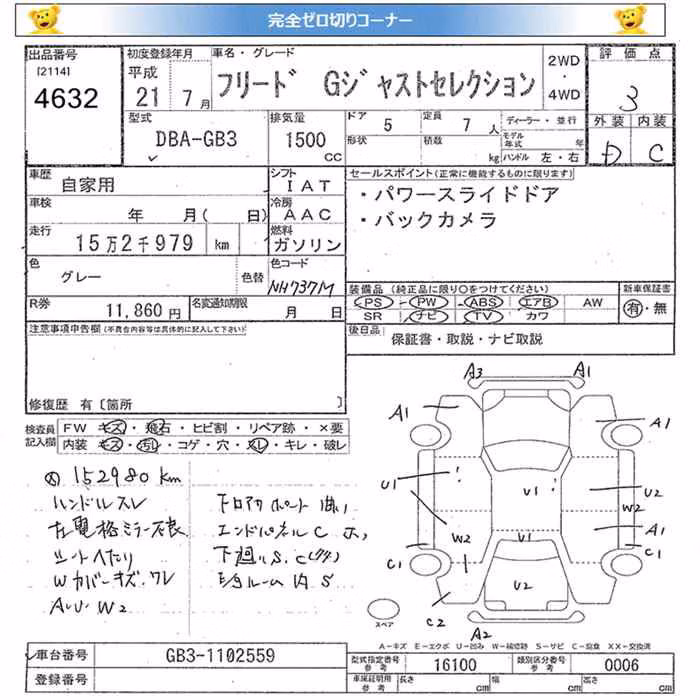 完全ゼロ切りコーナー
出品番号
[2114]
4632
初度登録年月
平成
21 7月
車名・グレード
フリード Gジャストセレクション
2WD
・
4WD
評価点
3
外装 内装
D C
型式
DBA-GB3
排気量
1500
CC
ドア 5
形状
定員 7人
積数 kg
ディーラー・並行
モデル年式 年
ハンドル 左・右
車歴 自家用
シフト IAT
車検 年 月( 日)
冷房 AAC
走行 15万2千979 km
燃料 ガソリン
色 グレー 色替
色コード NH737M
R券 11,860円
名変通知期限 月 日
セールスポイント(正常に機能するものに限ります)
・パワースライドドア
・バックカメラ
装備品 (純正品に限り○をつけてください)
PS PW ABS エアB AW
SR ナビ TV カワ
新車保証書
有・無
後日品 保証書・取説・ナビ取説
注意事項申告欄(不具合内容等は具体的に記入して下さい)
修復歴 有〔箇所 〕
検査員記入欄
FW キズ・飛石・ヒビ割・リペア跡・×要
内装 キズ・汚レ・コゲ・穴・スレ・キレ・破レ
152980km
ハンドルスレ
シートヘたり
Wカバーキズ・ワレ
A・U・W2
エンドパネルC
下廻りS.C
A3 A1
A1 A1
U1 U1 U2
W2 A1
W2 U1
C1 C1
U2
C2
A2
スペア
A-キズ E-エクボ U-凹み W-補修跡 S-サビ C-腐食 XX-交換済
車台番号 GB3-1102559
登録番号
型式指定番号
参考
16100
類別区分番号
参考
0006
車庫証明用
参考
長さ cm 幅 cm 高さ cm